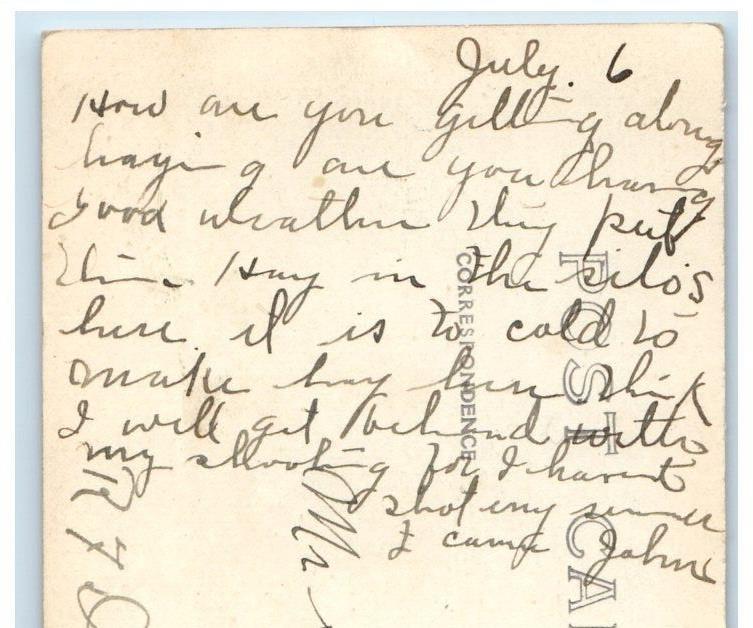 July. 6
How are you getting along
haying are you having
good weather they put
their Hay in the silo's
here it is to cold to
make hay here think
I will get behind with
my shooting for I havent
shot eny since
I came John
POST CAR
CORRESPONDENCE
Mr
R F D